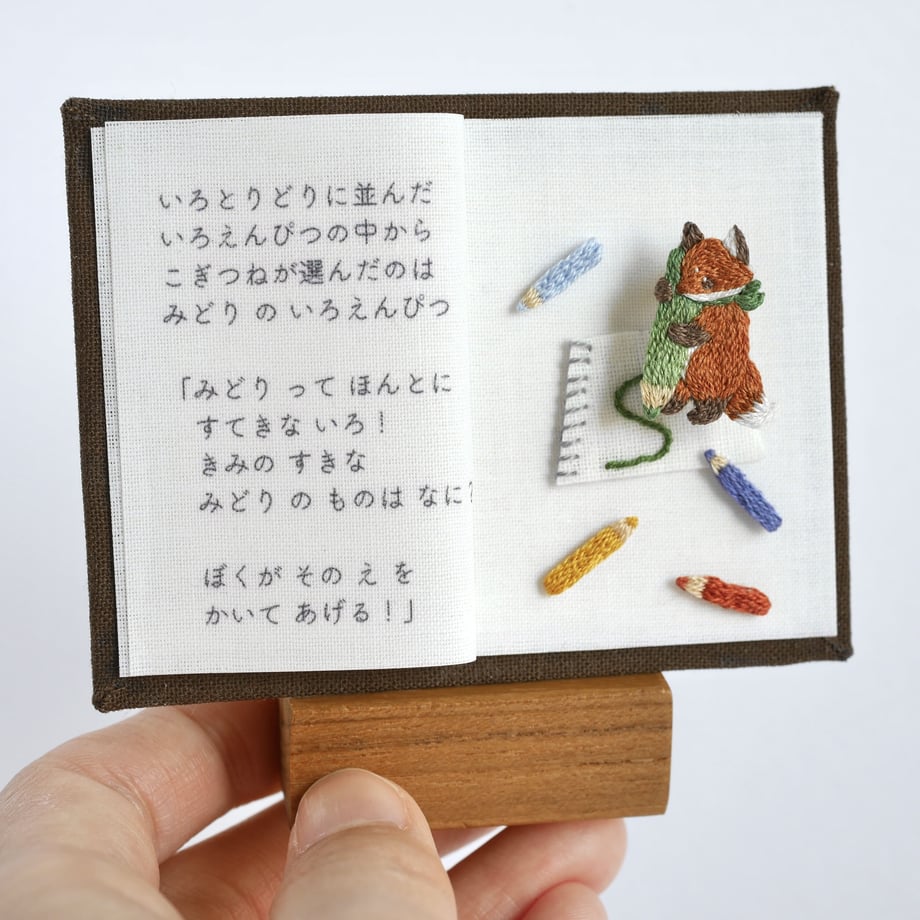 いろとりどりに並んだ
いろえんぴつの中から
こぎつねが選んだのは
みどり の いろえんぴつ
「みどり って ほんとに
すてきな いろ！
きみの すきな
みどり の ものは なに？
ぼくが その え を
かいて あげる！」